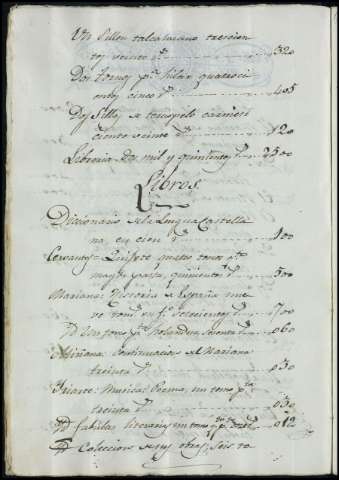 Un Sillon talcalarano trescien
tos veinte r.s ... 320
Dos tornos p.a hilar quatroci
entos cinco r.s ... 405
Dos Sillas de terciopelo carmesi
ciento veinte r.s ... 120
Libreria dos mil y quinientos r.s 2500
Libros
Diccionario de la Lengua Castella
na, en cien r.s ... 100
Cervantes: Quijote quatro tomos p.ta
mayor pasta, quinientos r.s ... 500
Mariana: Historia de España nue
ve tomos en f.o setecientos r.s ... 700
Yd. tomo p.ta holandesa sesenta r.s ... 060
Miñana: Continuacion de Mariana
treinta r.s ... 030
Yriarte: Musica: Poema, un tomo p.ta
treinta r.s ... 030
Yd. fabulas literarias, un tomo p.ta doce r.s 012
Yd. Coleccion de sus obras, seis to